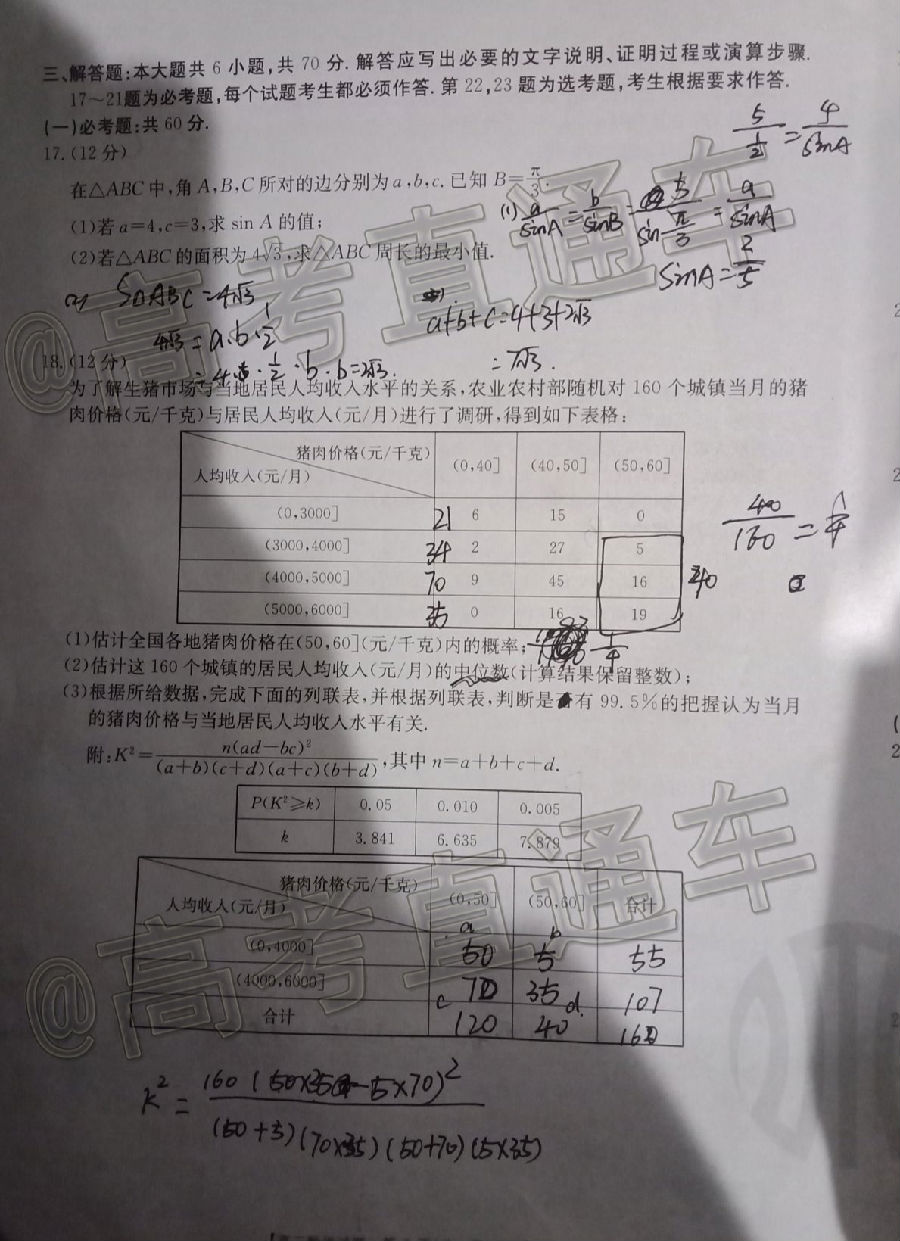 三、解答题:本大题共 6 小题,共 70 分. 解答应写出必要的文字说明、证明过程或演算步骤.
17～21题为必考题,每个试题考生都必须作答. 第 22,23 题为选考题,考生根据要求作答.
(一)必考题:共 60 分.
5/(1/2) = 4/sinA
17.(12 分)
在△ABC 中,角 A,B,C 所对的边分别为 a,b,c. 已知 B=π/3.
(1)若 a=4,c=3,求 sin A 的值;
(1) a/sinA = b/sinB = 5/sin π/3 = a/sinA
(2)若△ABC 的面积为 4√3,求△ABC 周长的最小值.
sinA = 2/5
(2) S△ABC=4√3
a+b+c=4+3+2√3
4√3 = a·b·1/2
=7√3.
18.(12 分)
= 4·1/2·b·b=2√3.
为了解生猪市场与当地居民人均收入水平的关系,农业农村部随机对 160 个城镇当月的猪
肉价格(元/千克)与居民人均收入(元/月)进行了调研,得到如下表格:
猪肉价格(元/千克)
人均收入(元/月)
(0,40] (40,50] (50,60]
(0,3000] 21 6 15 0
(3000,4000] 34 2 27 5
(4000,5000] 70 9 45 16
(5000,6000] 35 0 16 19
40
40/160 = 1/4
(1)估计全国各地猪肉价格在(50,60](元/千克)内的概率; 1/4
(2)估计这 160 个城镇的居民人均收入(元/月)的中位数(计算结果保留整数);
(3)根据所给数据,完成下面的列联表,并根据列联表,判断是有 99.5%的把握认为当月
的猪肉价格与当地居民人均收入水平有关.
附:K²=n(ad-bc)²/((a+b)(c+d)(a+c)(b+d)),其中 n=a+b+c+d.
P(K²≥k) 0.05 0.010 0.005
k 3.841 6.635 7.879
猪肉价格(元/千克)
人均收入(元/月)
(0,50] (50,60] 合计
(0,4000] a 50 b 5 55
(4000,6000] c 70 35 d 107
合计 120 40 160
K² = 160(50×35-5×70)²/((50+5)(70×35)(50+70)(5×35))
@高考直通车
@高考直通车